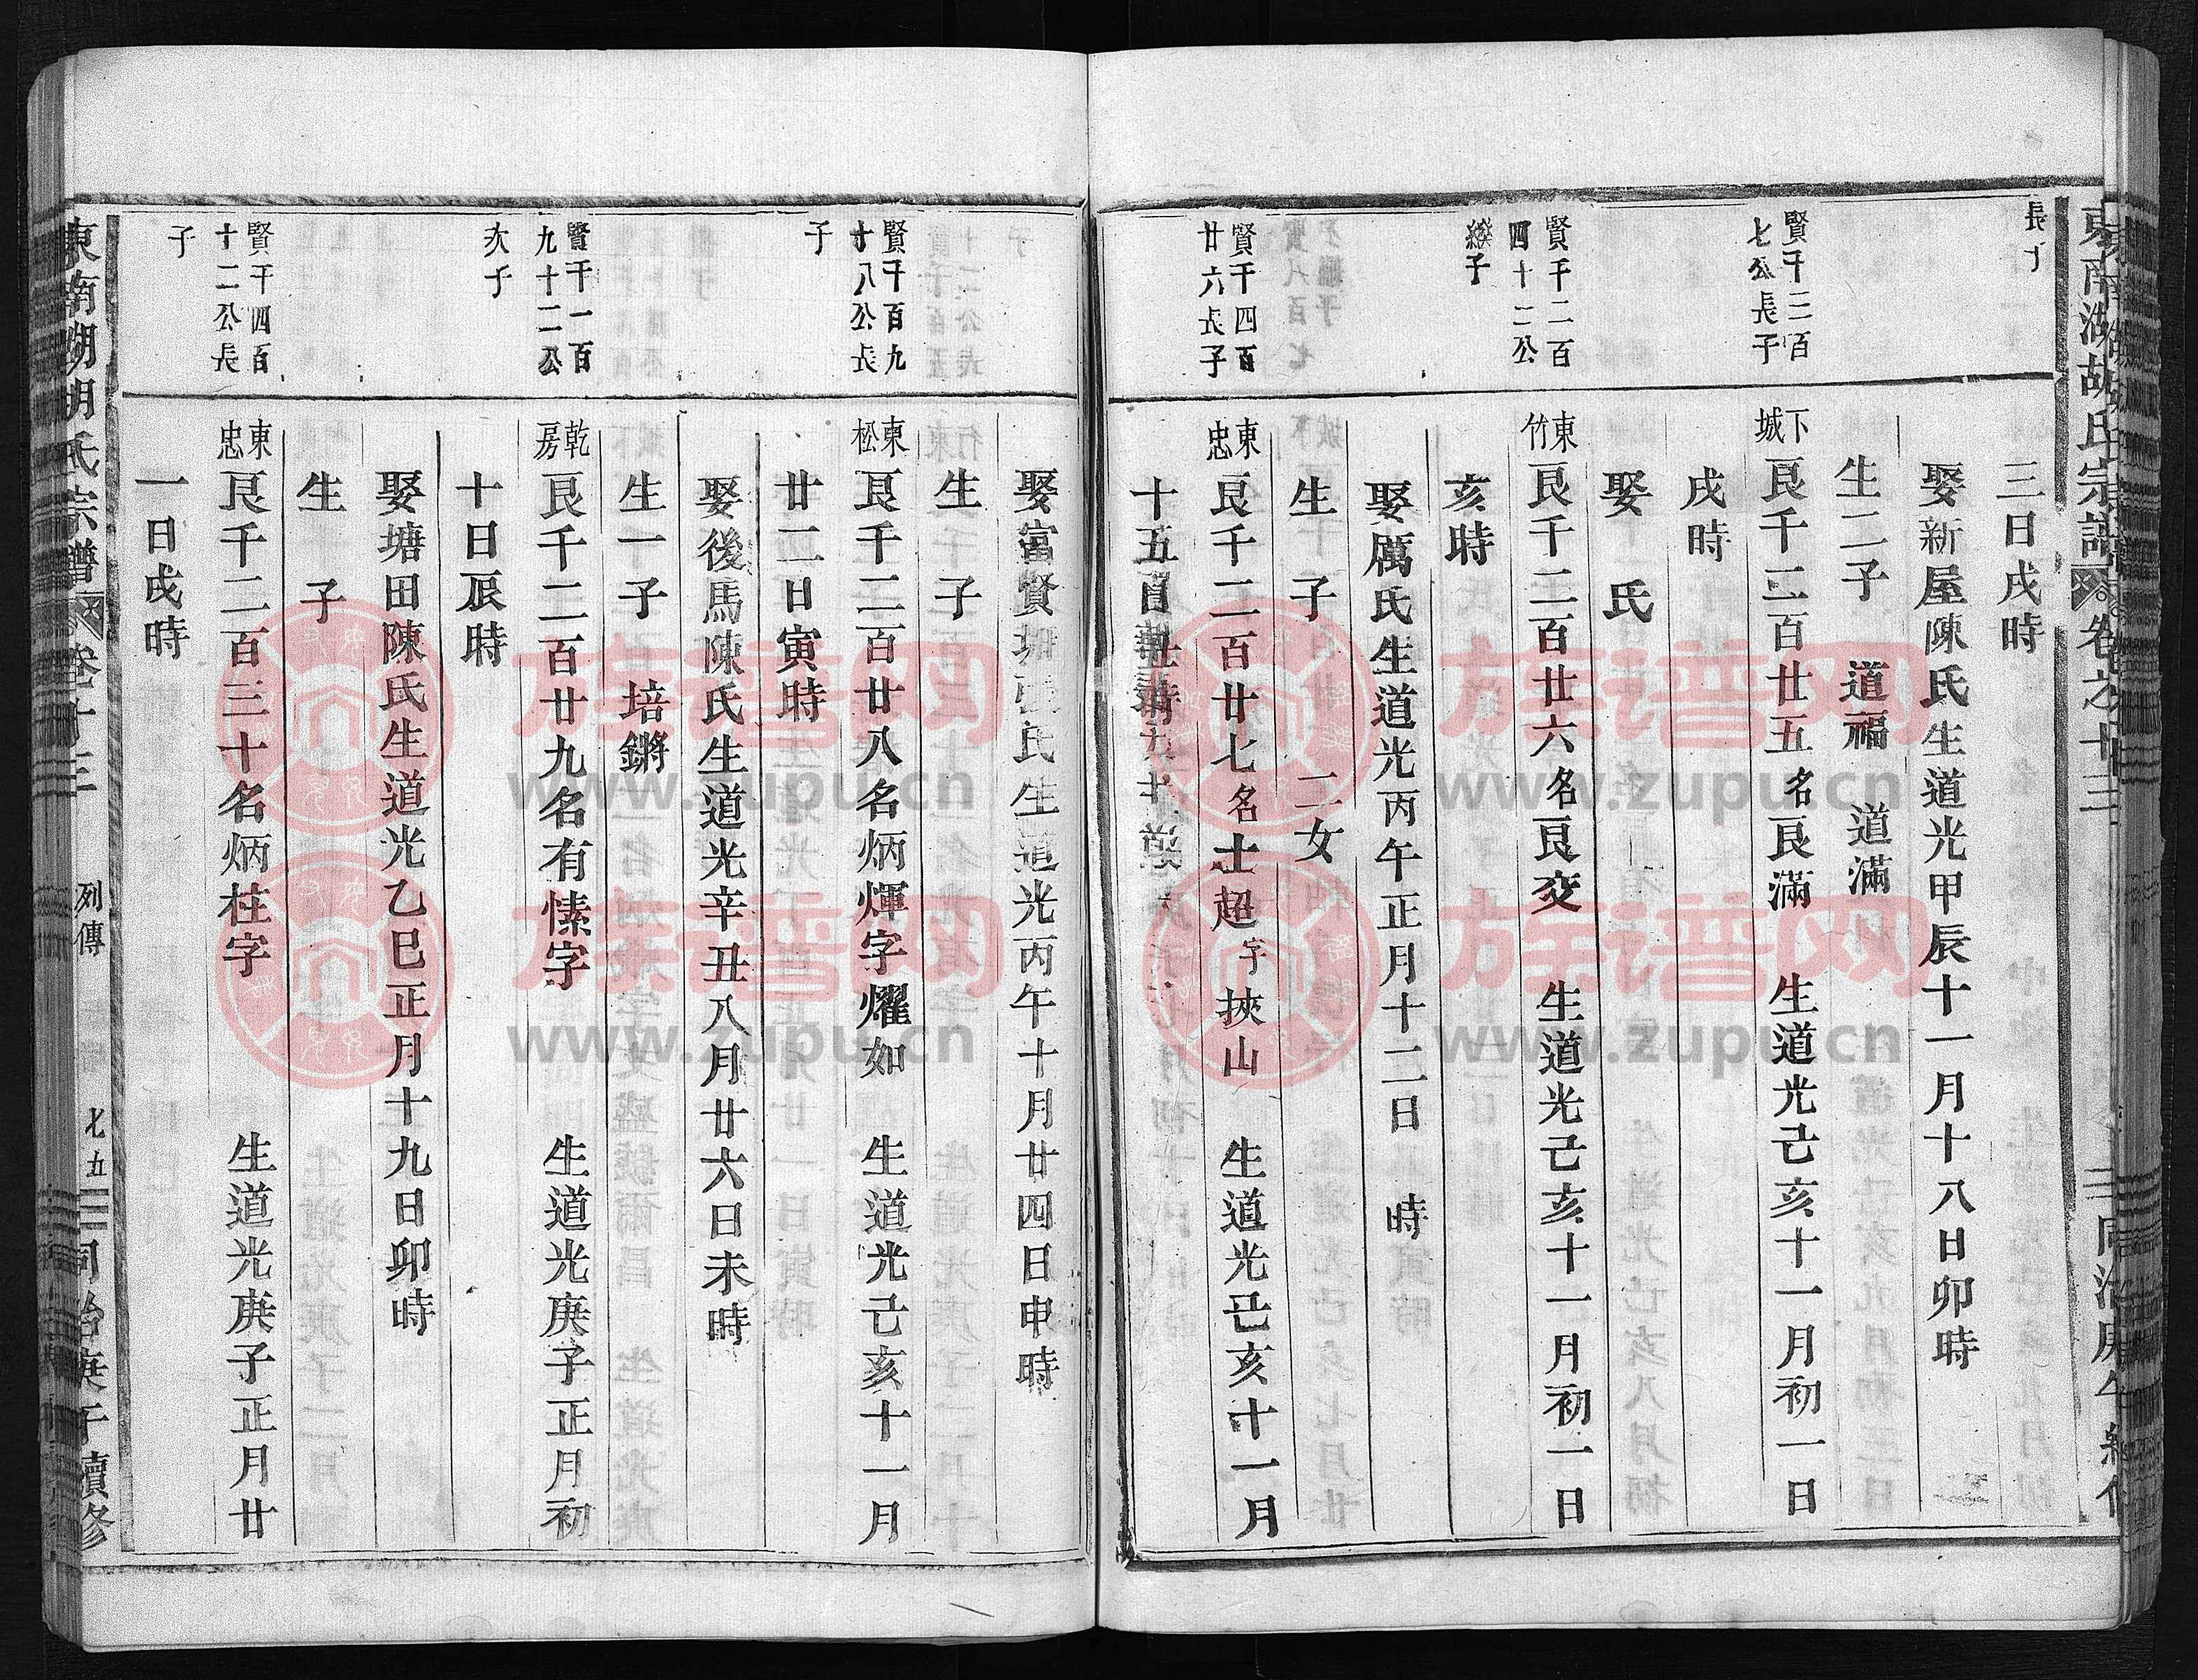 東南湖胡氏宗譜 卷之十三
同治庚午
長子
三日戌時
娶新屋陳氏生道光甲辰十一月十八日卯時
生二子 道福 道滿
賢千二百七公長子
下城 艮千二百廿五名艮滿 生道光己亥十一月初一日
戌時
娶 氏
賢千二百四十二公繼子
東竹 艮千二百廿六名艮交 生道光己亥十一月初一日
亥時
娶厲氏生道光丙午正月十二日 時
生 子 二女
賢千四百廿六長子
東忠 艮千二百廿七名士超字挾山 生道光己亥十一月
十五日
娶富賢 氏生道光丙午十月廿四日申時
生 子
賢千百九十八公長子
東松 艮千二百廿八名炳煇字燿如 生道光己亥十一月
廿二日寅時
娶後馬陳氏生道光辛丑八月廿六日未時
生一子 培鏘
賢千一百九十二公次子
乾房 艮千二百廿九名有愫字 生道光庚子正月初
十日辰時
娶塘田陳氏生道光乙巳正月十九日卯時
生 子
賢千四百十二公長子
東忠 艮千二百三十名炳柱字 生道光庚子正月廿
一日戌時
東南湖胡氏宗譜 卷之十三 列傳 七五 同治庚午續修
族谱网
www.zupu.cn
族谱网
www.zupu.cn
族谱网
www.zupu.cn
族谱网
www.zupu.cn